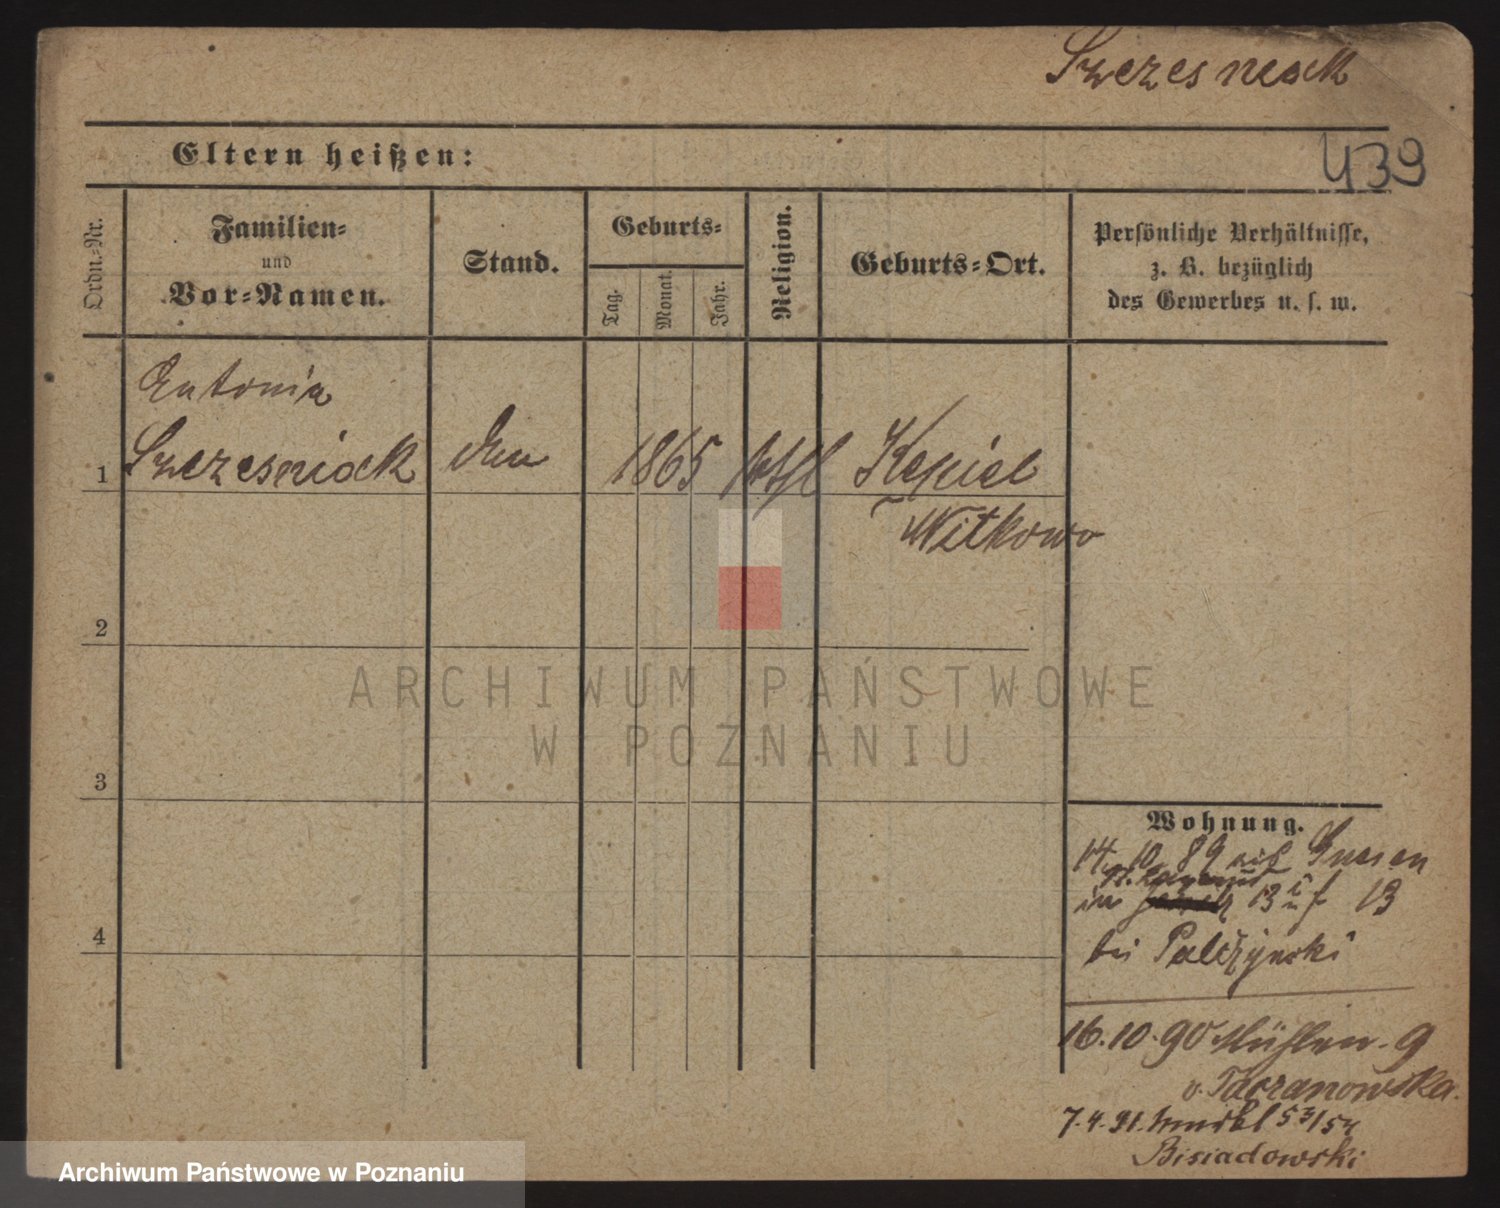 Szczesniack
439
Eltern heißen:
Ordn.-Nr.
Familien-
und
Vor-Namen.
Stand.
Geburts-
Tag.
Monat.
Jahr.
Religion.
Geburts-Ort.
Persönliche Verhältnisse,
z. B. bezüglich
des Gewerbes u. s. w.
Antonia
1 Szczesniack 1865 kthl
Witkowo
2
3
4
Wohnung.
14. 10. 89 aus Gnesen
in 13 13
bei Palczynski
16.10.90 Mühlen-9
v. Taczanowska.
7.4.91.
Bisiadowski
ARCHIWUM PAŃSTWOWE
W POZNANIU
Archiwum Państwowe w Poznaniu